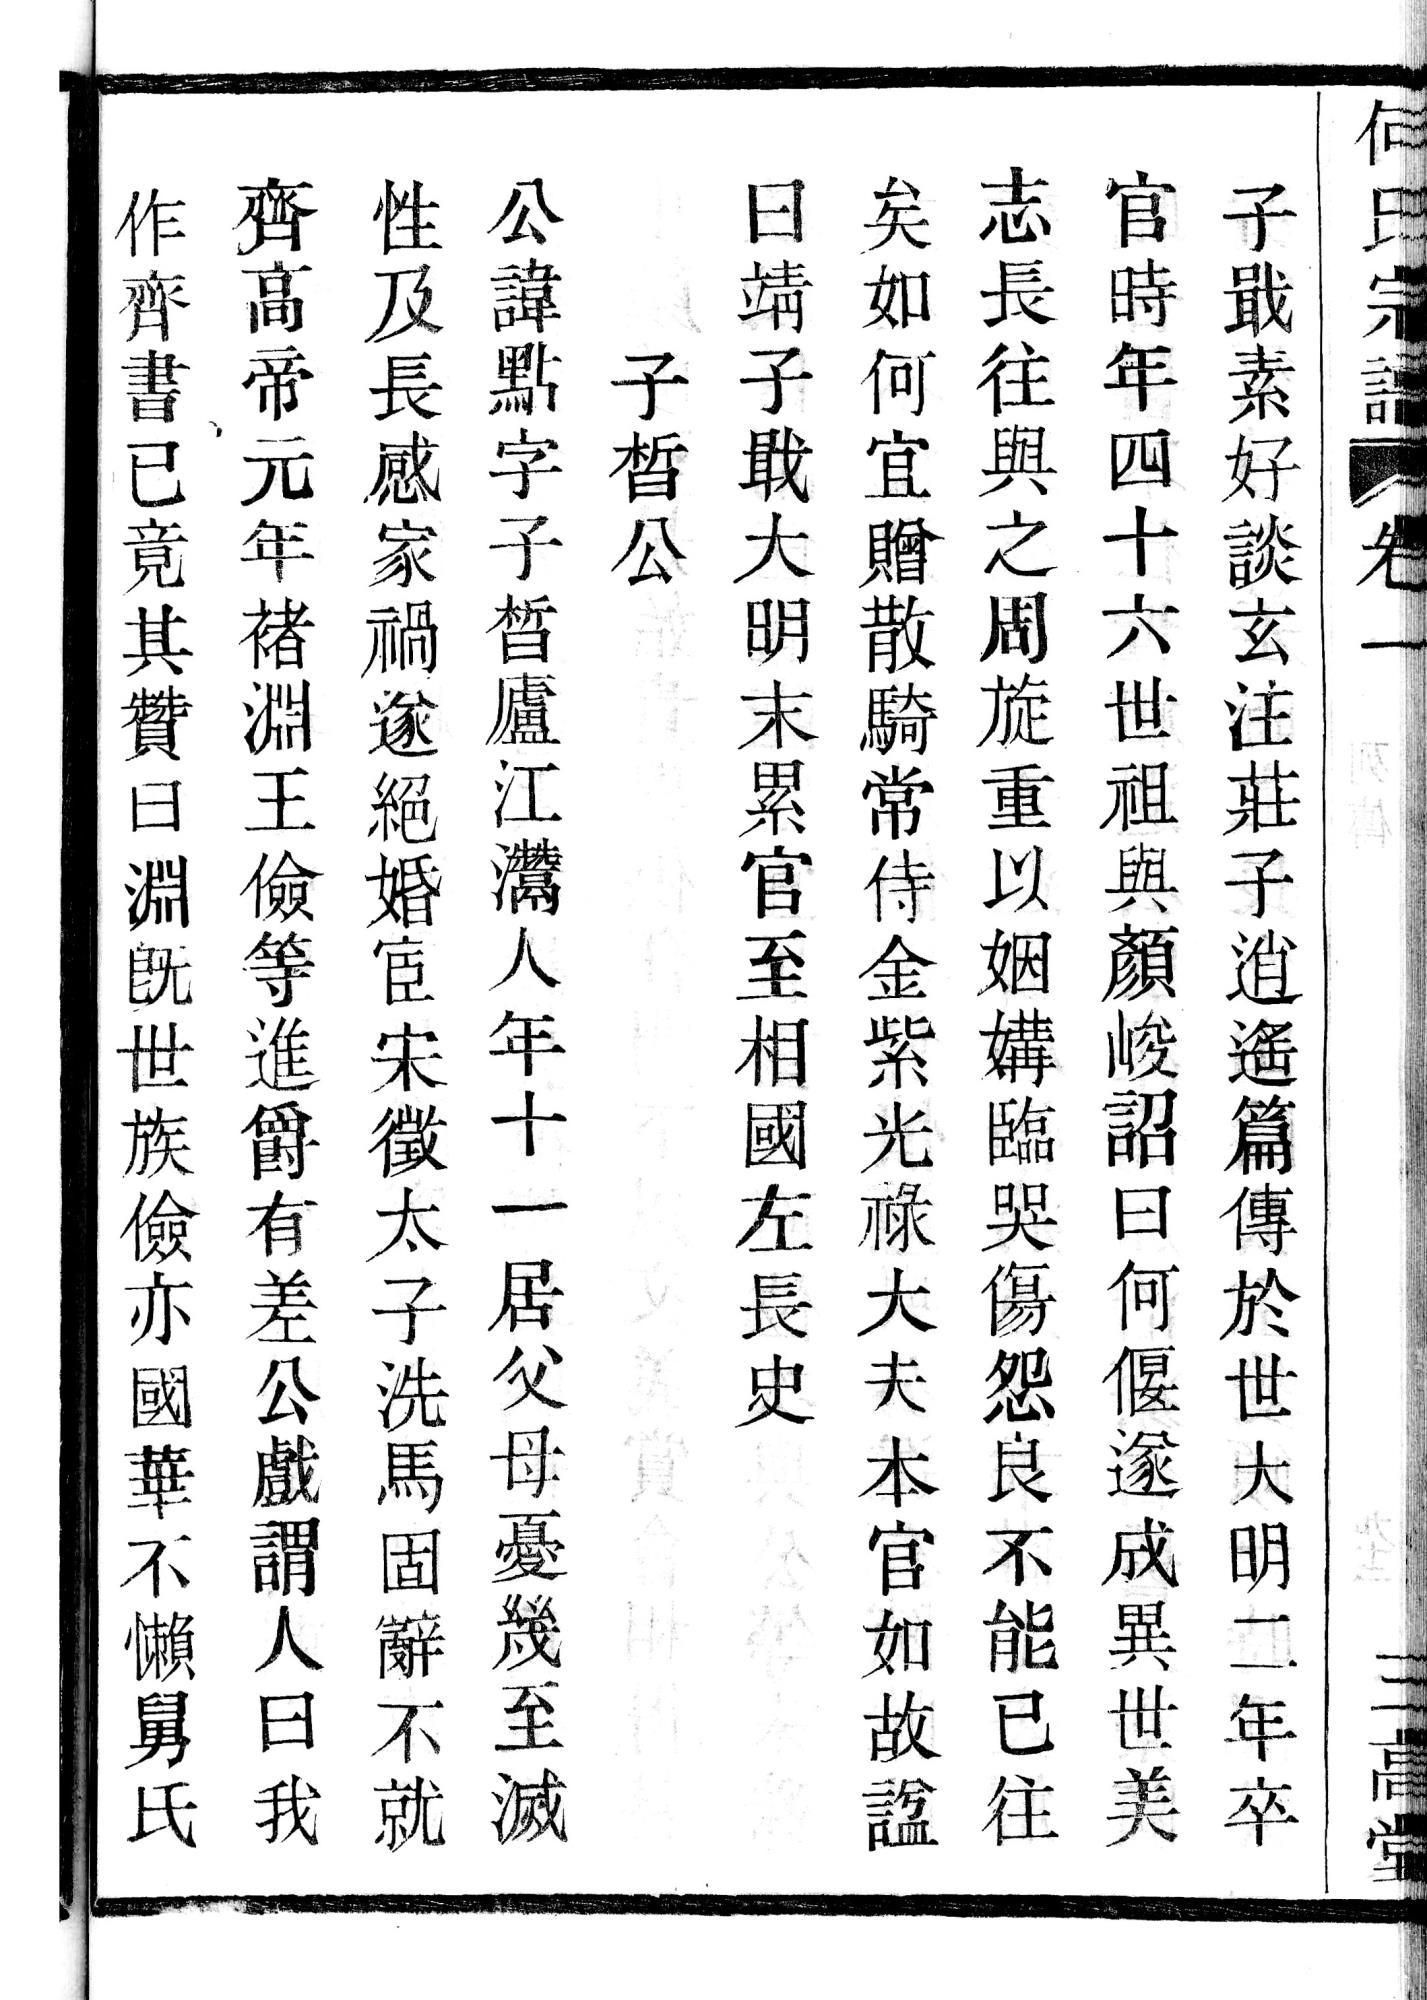 何氏宗譜 卷一 列傳 三高堂
子戢素好談玄注莊子逍遙篇傳於世大明二年卒
官時年四十六世祖與顏峻詔曰何偃遂成異世美
志長往與之周旋重以姻媾臨哭傷怨良不能已往
矣如何宜贈散騎常侍金紫光祿大夫本官如故諡
曰靖子戢大明末累官至相國左長史
子晳公
公諱點字子晳廬江灊人年十一居父母憂幾至滅
性及長感家禍遂絕婚宦宋徵太子洗馬固辭不就
齊高帝元年褚淵王儉等進爵有差公戲謂人曰我
作齊書已竟其贊曰淵既世族儉亦國華不懶舅氏